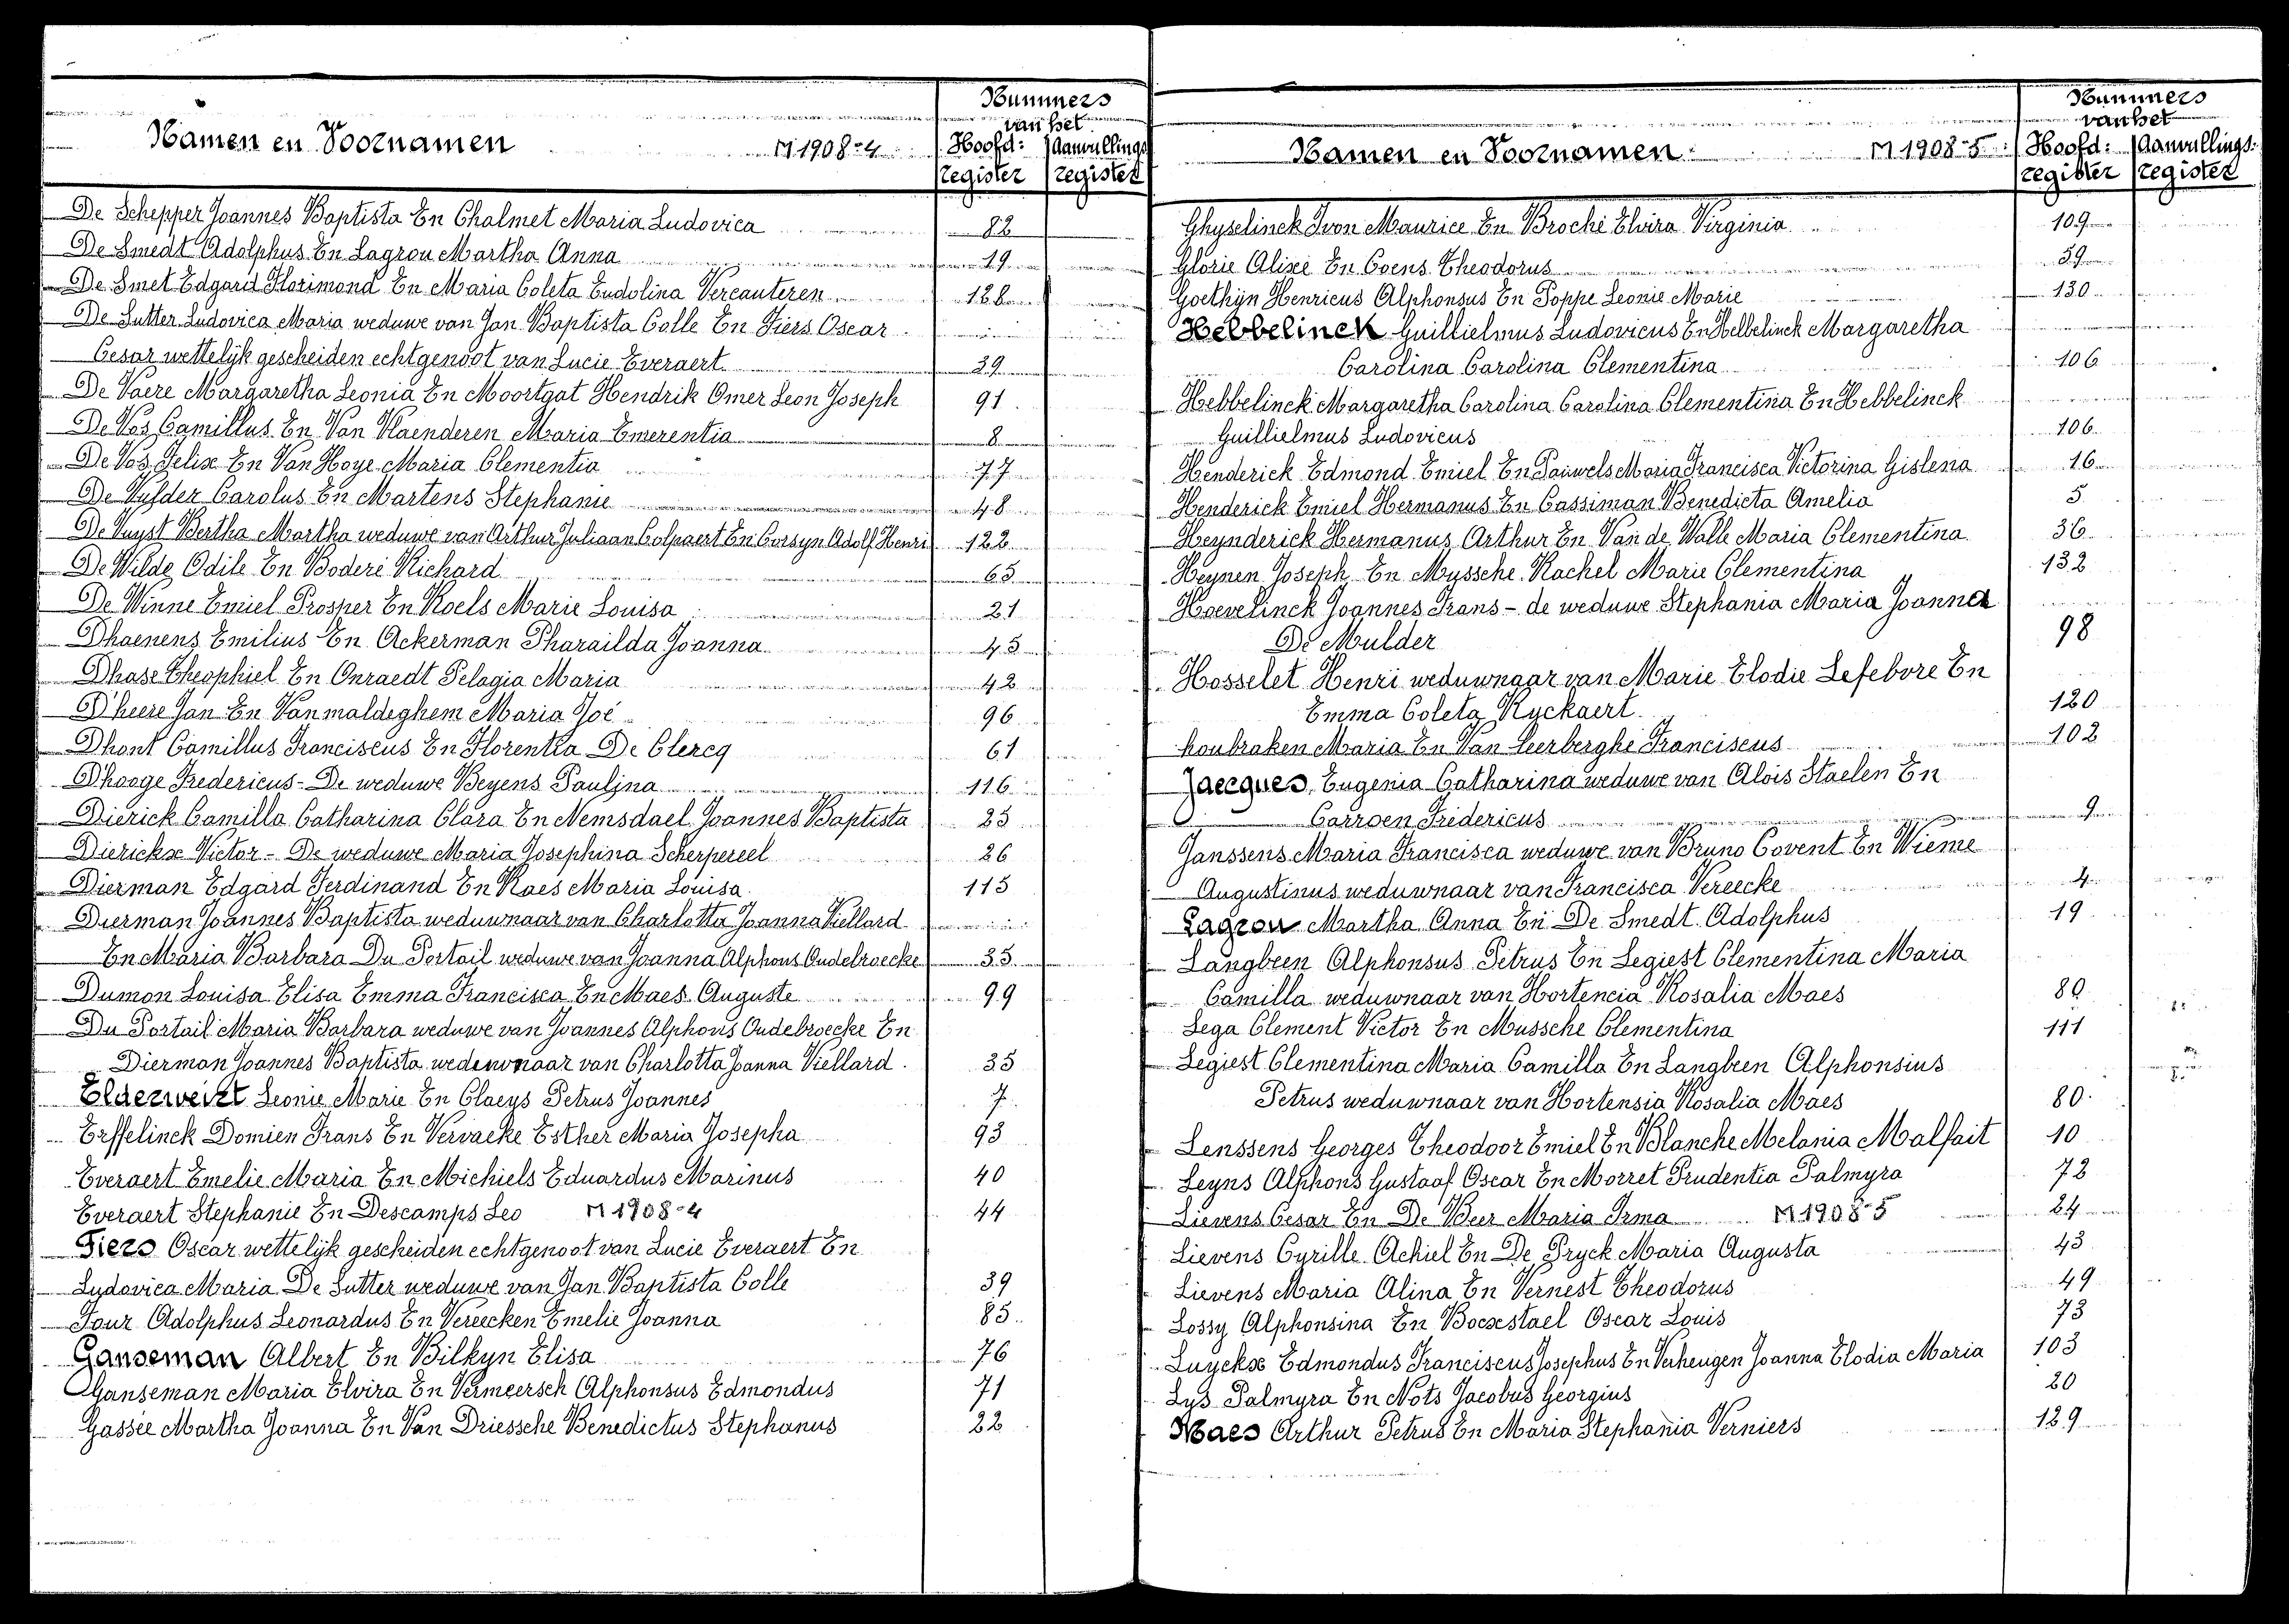 Namen en Voornamen M 1908-4
Nummers
van het
Hoofd: Aanvullings
register register
De Schepper Joannes Baptista En Chalmet Maria Ludovica 82
De Smedt Adolphus En Lagrou Martha Anna 19
De Smet Edgard Florimond En Maria Coleta Eudolina Vercauteren 128
De Sutter Ludovica Maria weduwe van Jan Baptista Colle En Fiers Oscar
Cesar wettelijk gescheiden echtgenoot van Lucie Everaert 39
De Vaere Margaretha Leonia En Moortgat Hendrik Omer Leon Joseph 91
De Vos Camillus En Van Vlaenderen Maria Emerentia 8
De Vos Felix En Van Hoye Maria Clementia 77
De Vylder Carolus En Martens Stephanie 48
De Vuyst Bertha Martha weduwe van Arthur Juliaan Colpaert En Corsyn Adolf Henri 122
De Wilde Odile En Boderé Richard 65
De Winne Emiel Prosper En Roels Marie Louisa 21
Dhaenens Emilius En Ackerman Pharailda Joanna 45
Dhase Theophiel En Onraedt Pelagia Maria 42
D'heere Jan En Vanmaldeghem Maria Zoë 96
Dhont Camillus Franciscus En Florentia De Clercq 61
Dhooge Fredericus - De weduwe Beyens Paulina 116
Dierick Camilla Catharina Clara En Nemsdael Joannes Baptista 25
Dierickx Victor - De weduwe Maria Josephina Scherpereel 26
Dierman Edgard Ferdinand En Raes Maria Louisa 115
Dierman Joannes Baptista weduwnaar van Charlotta Joanna Viellard
En Maria Barbara Du Portail weduwe van Joanna Alphons Oudebroecke 35
Dumon Louisa Elisa Emma Francisca En Maes Auguste 99
Du Portail Maria Barbara weduwe van Joannes Alphons Oudebroecke En
Dierman Joannes Baptista weduwnaar van Charlotta Joanna Viellard 35
Elderweirt Leonie Marie En Claeys Petrus Joannes 7
Erffelinck Domien Frans En Vervacke Esther Maria Josepha 93
Everaert Emelie Maria En Michiels Eduardus Marinus 40
Everaert Stephanie En Descamps Leo M 1908-4 44
Fiers Oscar wettelijk gescheiden echtgenoot van Lucie Everaert En
Ludovica Maria De Sutter weduwe van Jan Baptista Colle 39
Four Adolphus Leonardus En Vereecken Emelie Joanna 85
Ganseman Albert En Bilkyn Elisa 76
Ganseman Maria Elvira En Vermeersch Alphonsus Edmondus 71
Gassée Martha Joanna En Van Driessche Benedictus Stephanus 22
Namen en Voornamen M 1908-5
Nummers
van het
Hoofd: Aanvullings
register register
Ghyselinck Ivon Maurice En Broché Elvira Virginia 109
Glorie Alixe En Coens Theodorus 59
Goethyn Henricus Alphonsus En Poppe Leonie Marie 130
Hebbelinck Guillielmus Ludovicus En Hebbelinck Margaretha
Carolina Carolina Clementina 106
Hebbelinck Margaretha Carolina Carolina Clementina En Hebbelinck
Guillielmus Ludovicus 106
Henderick Edmond Emiel En Pauwels Maria Francisca Victorina Gislena 16
Henderick Emiel Hermanus En Cassiman Benedicta Amelia 5
Heynderick Hermanus Arthur En Van de Walle Maria Clementina 36
Heynen Joseph En Myssche Rachel Marie Clementina 132
Hoevelinck Joannes Frans - de weduwe Stephania Maria Joanna
De Mulder 98
Hosselet Henri weduwnaar van Marie Elodie Lefebore En
Emma Coleta Ryckaert 120
houbraken Maria En Van Leerberghe Franciscus 102
Jaecques Eugenia Catharina weduwe van Alois Staelen En
Carroen Fridericus 9
Janssens Maria Francisca weduwe van Bruno Covent En Wieme
Augustinus weduwnaar van Francisca Vereecke 4
Lagrou Martha Anna En De Smedt Adolphus 19
Langbeen Alphonsus Petrus En Legiest Clementina Maria
Camilla weduwnaar van Hortencia Rosalia Maes 80
Lega Clement Victor En Mussche Clementina 111
Legiest Clementina Maria Camilla En Langbeen Alphonsius
Petrus weduwnaar van Hortensia Rosalia Maes 80
Lenssens Georges Theodoor Emiel En Blanche Melania Malfait 10
Leyns Alphons Gustaaf Oscar En Morret Prudentia Palmyra 72
Lievens Cesar En De Weer Maria Irma M 1908-5 24
Lievens Cyrille Achiel En De Pryck Maria Augusta 43
Lievens Maria Alina En Vernest Theodorus 49
Lossy Alphonsina En Bocxstael Oscar Louis 73
Luyckx Edmondus Franciscus Josephus En Verheugen Joanna Elodia Maria 103
Lys Palmyra En Nots Jacobus Georgius 20
Maes Arthur Petrus En Maria Stephania Verniers 129